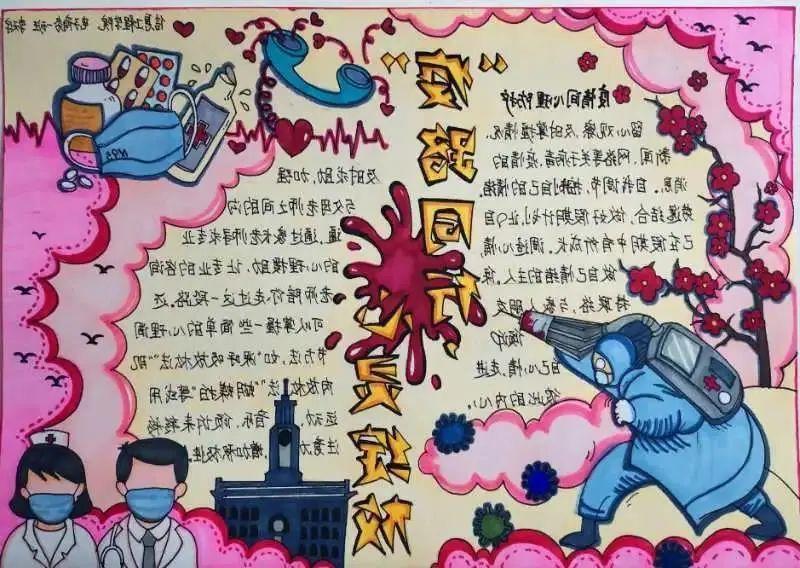 信息工程学院 电子商务一班
N95
“疫路同行
疫情间心理防护
留心观察,及时掌握情况,
新闻、网络等关于病毒、疫情的
消息。自我调节,控制自己的情绪,
劳逸结合,做好假期计划,让自
己在假期中有所成长。调适心情
做自己情绪的主人。保
持联络与家人朋友
倾诉
自己心情,走进
彼此的内心。
及时求助,加强
与父母老师之间的沟
通。通过家长老师寻求专业
的心理援助,让专业的咨询
老师陪你走过这一段路。还
可以掌握一些简单的心理调
节方法,如“深呼吸放松法”“肌
肉放松法”“蝴蝶拍”尝试用
运动、音乐、倾诉来转移
注意力,增加积极性。